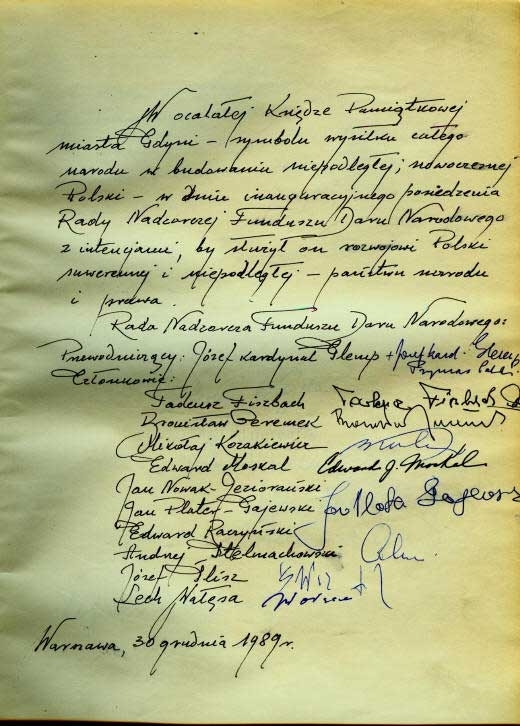 W ocalałej Księdze Pamiątkowej
miasta Gdyni – symbolu wysiłku całego
narodu w budowaniu niepodległej, nowoczesnej
Polski – w dniu inauguracyjnego posiedzenia
Rady Nadzorczej Funduszu Daru Narodowego
z intencjami, by służył on rozwojowi Polski
suwerennej i niepodległej – państwu narodu
i prawa.
Rada Nadzorcza Funduszu Daru Narodowego:
Przewodniczący: Józef kardynał Glemp + Józef kard. Glemp
Prymas Polski
Członkowie:
Tadeusz Fiszbach Tadeusz Fiszbach
Bronisław Geremek
Mikołaj Kozakiewicz
Edward Moskal Edward J. Moskal
Jan Nowak-Jeziorański
Jan Plater-Gajewski Jan Plater Gajewski
Edward Raczyński
Andrzej Stelmachowski
Józef Ślisz
Lech Wałęsa
Warszawa, 30 grudnia 1989 r.